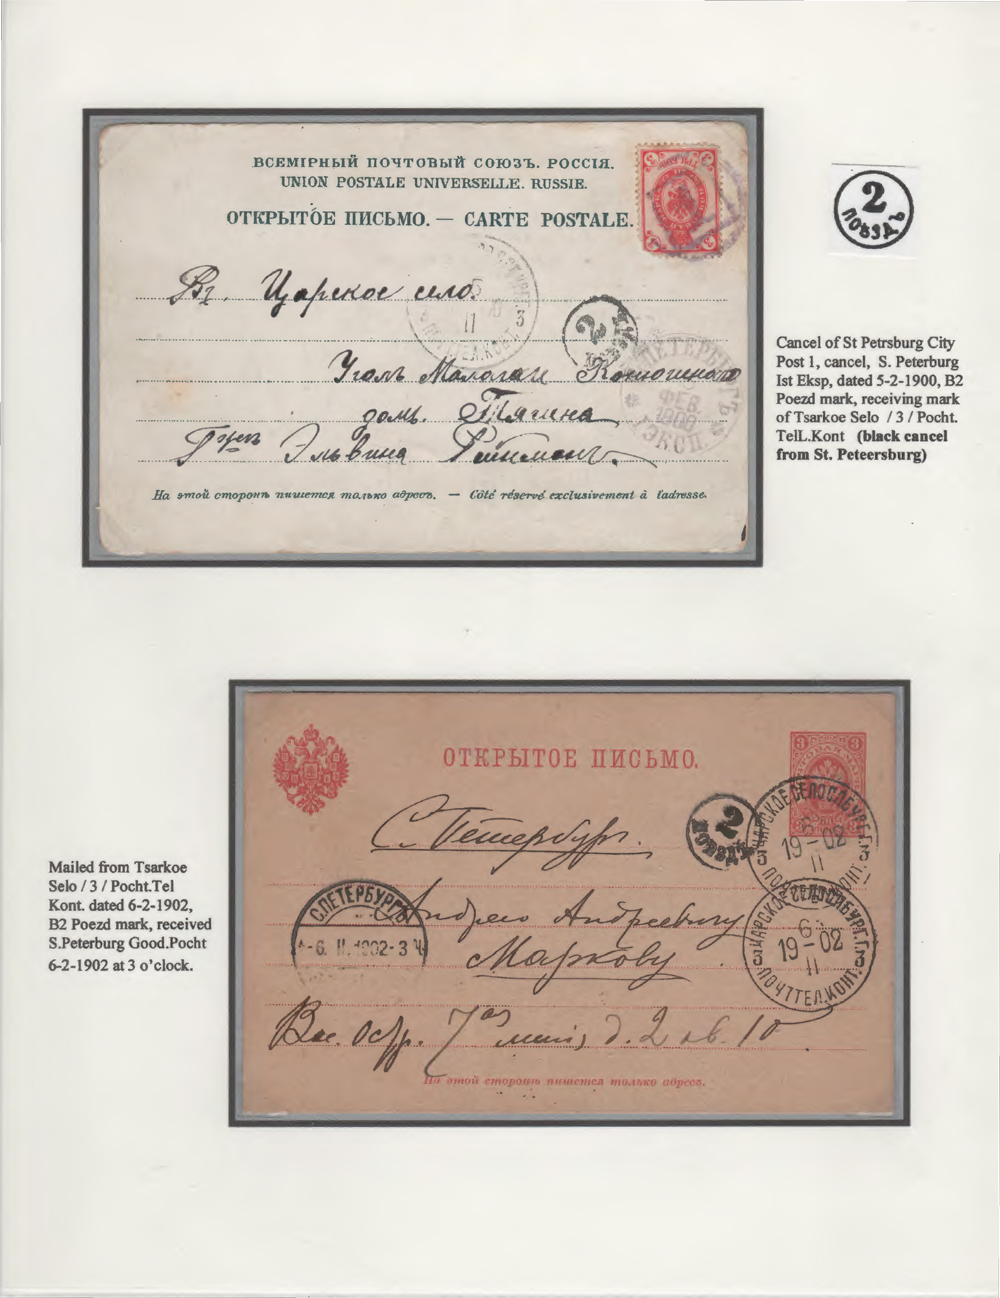 ВСЕМІРНЫЙ ПОЧТОВЫЙ СОЮЗЪ. РОССІЯ.
UNION POSTALE UNIVERSELLE. RUSSIE.
ОТКРЫТОЕ ПИСЬМО. — CARTE POSTALE.
2
ПОѢЗДЪ
Въ. Царское село.
11 3
2
Уголъ Малой и Конюшенной
домъ. Тягина
ФЕВ.
1900
ЭКСП.
Эльвина
На этой сторонѣ пишется только адресъ. — Côté réservé exclusivement à l'adresse.
Cancel of St Petrsburg City
Post 1, cancel, S. Peterburg
Ist Eksp, dated 5-2-1900, B2
Poezd mark, receiving mark
of Tsarkoe Selo / 3 / Pocht.
TelL.Kont (black cancel
from St. Peteersburg)
3 3
ОТКРЫТОЕ ПИСЬМО.
2
ПОѢЗДЪ
ЦАРСКОЕ СЕЛО СПБУРГ.Г.
6
19-02
11
3 ПОЧТ.ТЕЛ.КОНТ. 3
С. Петербург.
С.ПЕТЕРБУРГЪ
-6. II. 1902-3 Ч
Андрею Андреевичу
Маркову
ЦАРСКОЕ СЕЛО СПБУРГ.Г.
6
19-02
11
3 ПОЧТ.ТЕЛ.КОНТ. 3
Вас. Остр. 7ая линія д. 2 кв. 10
На этой сторонѣ пишется только адресъ.
Mailed from Tsarkoe
Selo / 3 / Pocht.Tel
Kont. dated 6-2-1902,
B2 Poezd mark, received
S.Peterburg Good.Pocht
6-2-1902 at 3 o'clock.